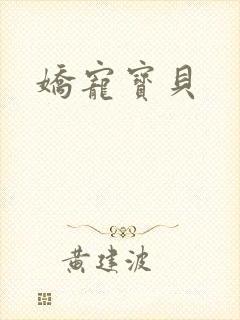 嬌寵寶貝
黃建波